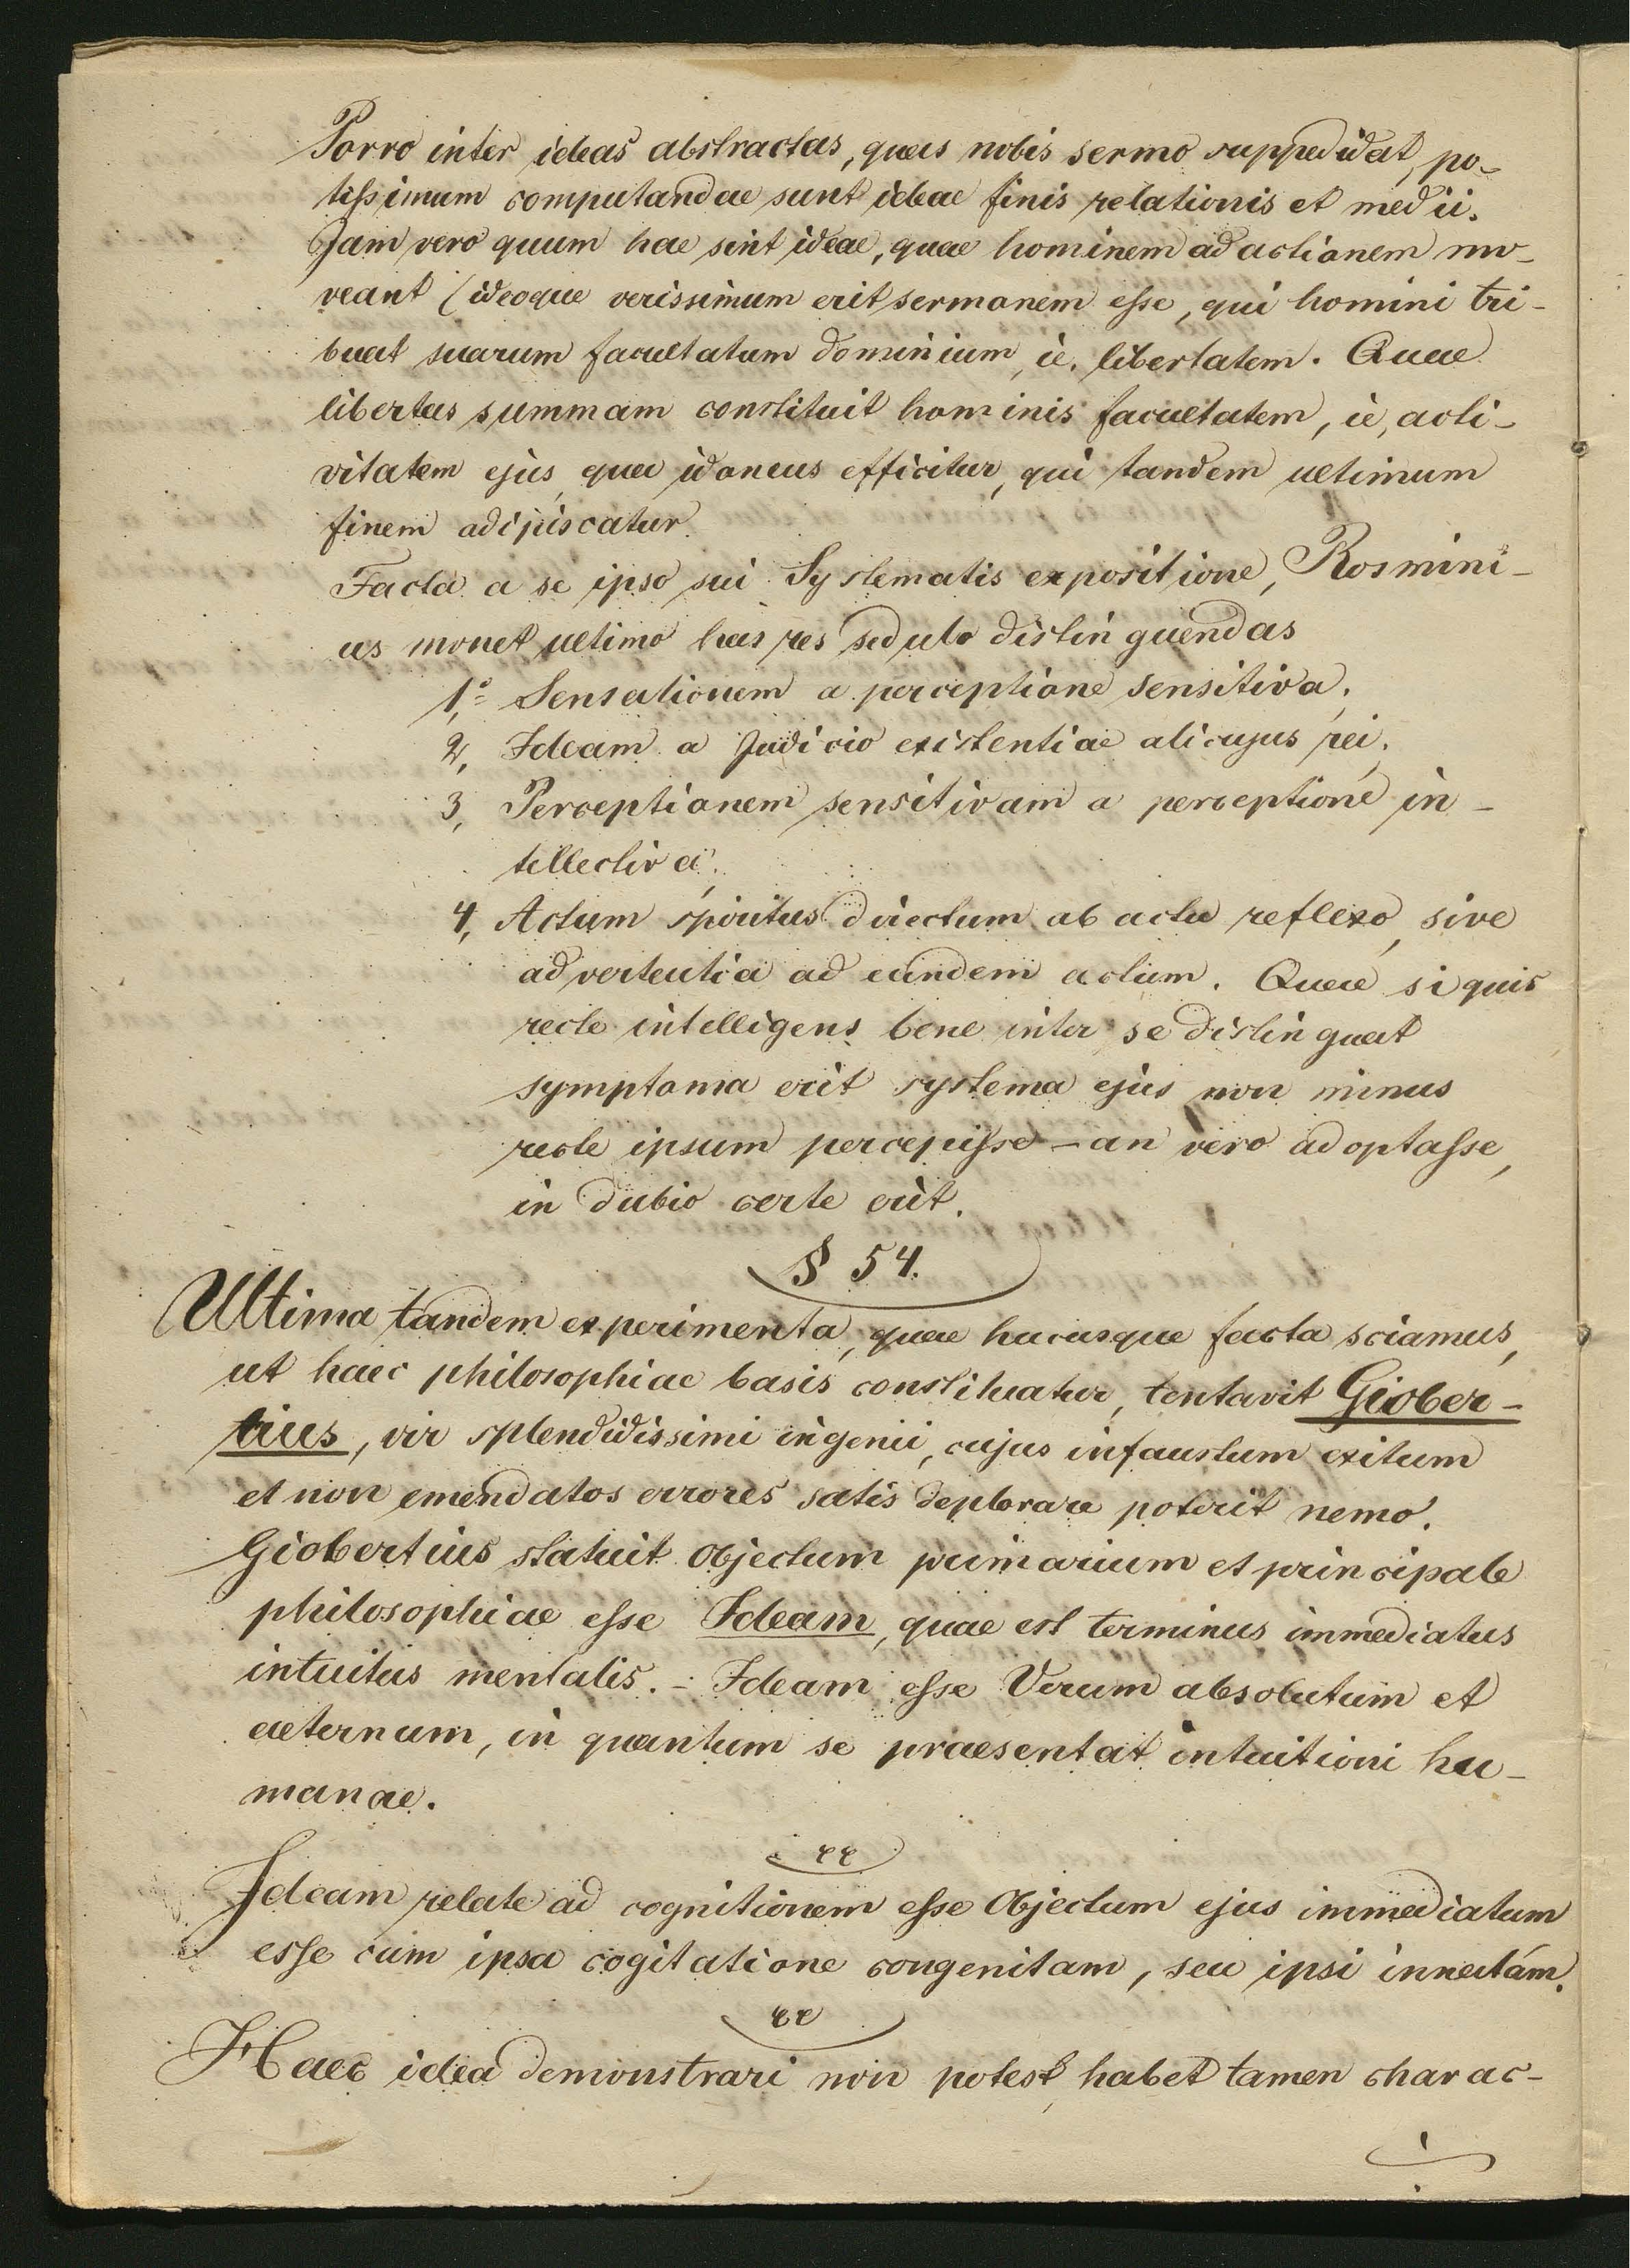 Porro inter ideas abstractas, quas nobis sermo suppedidat, po-
tissimum computandae sunt ideae finis relationis et medii.
Jam vero quum hae sint ideae, quae hominem ad actionem mo-
veant (ideoque verissimum erit sermonem esse, qui homini tri-
buat suarum facultatum dominium, ie. libertatem. Quae
libertas summam constituit hominis facultatem, ie, acti-
vitatem ejus, qua idoneus efficitur, qui tandem ultimum
finem adipiscatur.
Facta a se ipso sui Systematis expositione, Rosmini-
us monet ultimo has res sedulo distinguendas
1,° Sensationem a perceptione sensitiva;
2, Ideam a Judicio existentiae alicujus rei;
3, Perceptionem sensitivam a perceptione in-
tellectiva;
4, Actum spiritus directum ab actu reflexo, sive
advertentia ad eundem actum. Quae si quis
recte intelligens bene inter se distinguat
symptoma erit systema ejus non minus
recte ipsum percepisse – an vero adoptasse,
in dubio certe erit.
§ 54.
Ultima tandem experimenta, quae hucusque facta sciamus,
ut haec philosophiae basis constituatur, tentavit Giober-
tius, vir splendidissimi ingenii, cujus infaustum exitum
et non emendatos errores satis deplorare poterit nemo.
Giobertius statuit Objectum primarium et principale
philosophiae esse Ideam, quae est terminus immediatus
intuitus mentalis. - Ideam esse Verum absolutum et
aeternum, in quantum se praesentat intuitioni hu-
manae.
Ideam relate ad cognitionem esse Objectum ejus immediatum
esse cum ipsa cogitatione congenitam, seu ipsi innatam.
Haec idea demonstrari non potest, habet tamen charac-